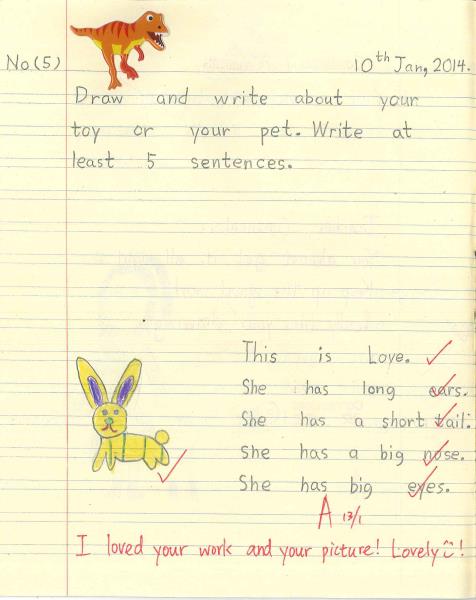 No(5)
10th Jan, 2014.
Draw and write about your
toy or your pet. Write at
least 5 sentences.
This is Love.
She has long ears.
She has a short tail.
She has a big nose.
She has big eyes.
A 13/1
I loved your work and your picture! Lovely!